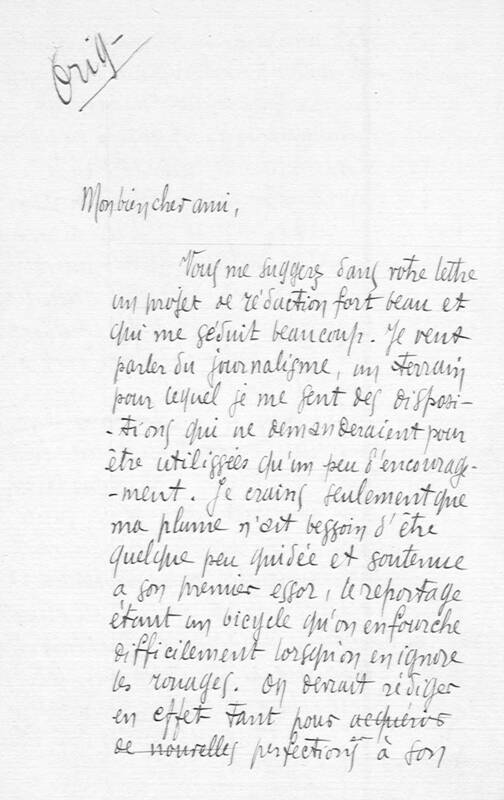 Orig-
Mon bien cher ami,
Vous me suggerez dans votre lettre
un projet de rédaction fort beau et
qui me séduit beaucoup. Je veux
parler du journalisme, un terrain
pour lequel je me sent des disposi-
-tions qui ne demanderaient pour
être utilissées qu'un peu d'encourage-
-ment. Je crains seulement que
ma plume n'ait bessoin d'être
quelque peu guidée et soutenue
a son premier essor, le reportage
étant un bicycle qu'on enfourche
difficilement lorsqu'on en ignore
les rouages. On devrait rédiger
en effet tant pour acquérir
de nouvelles perfections à son